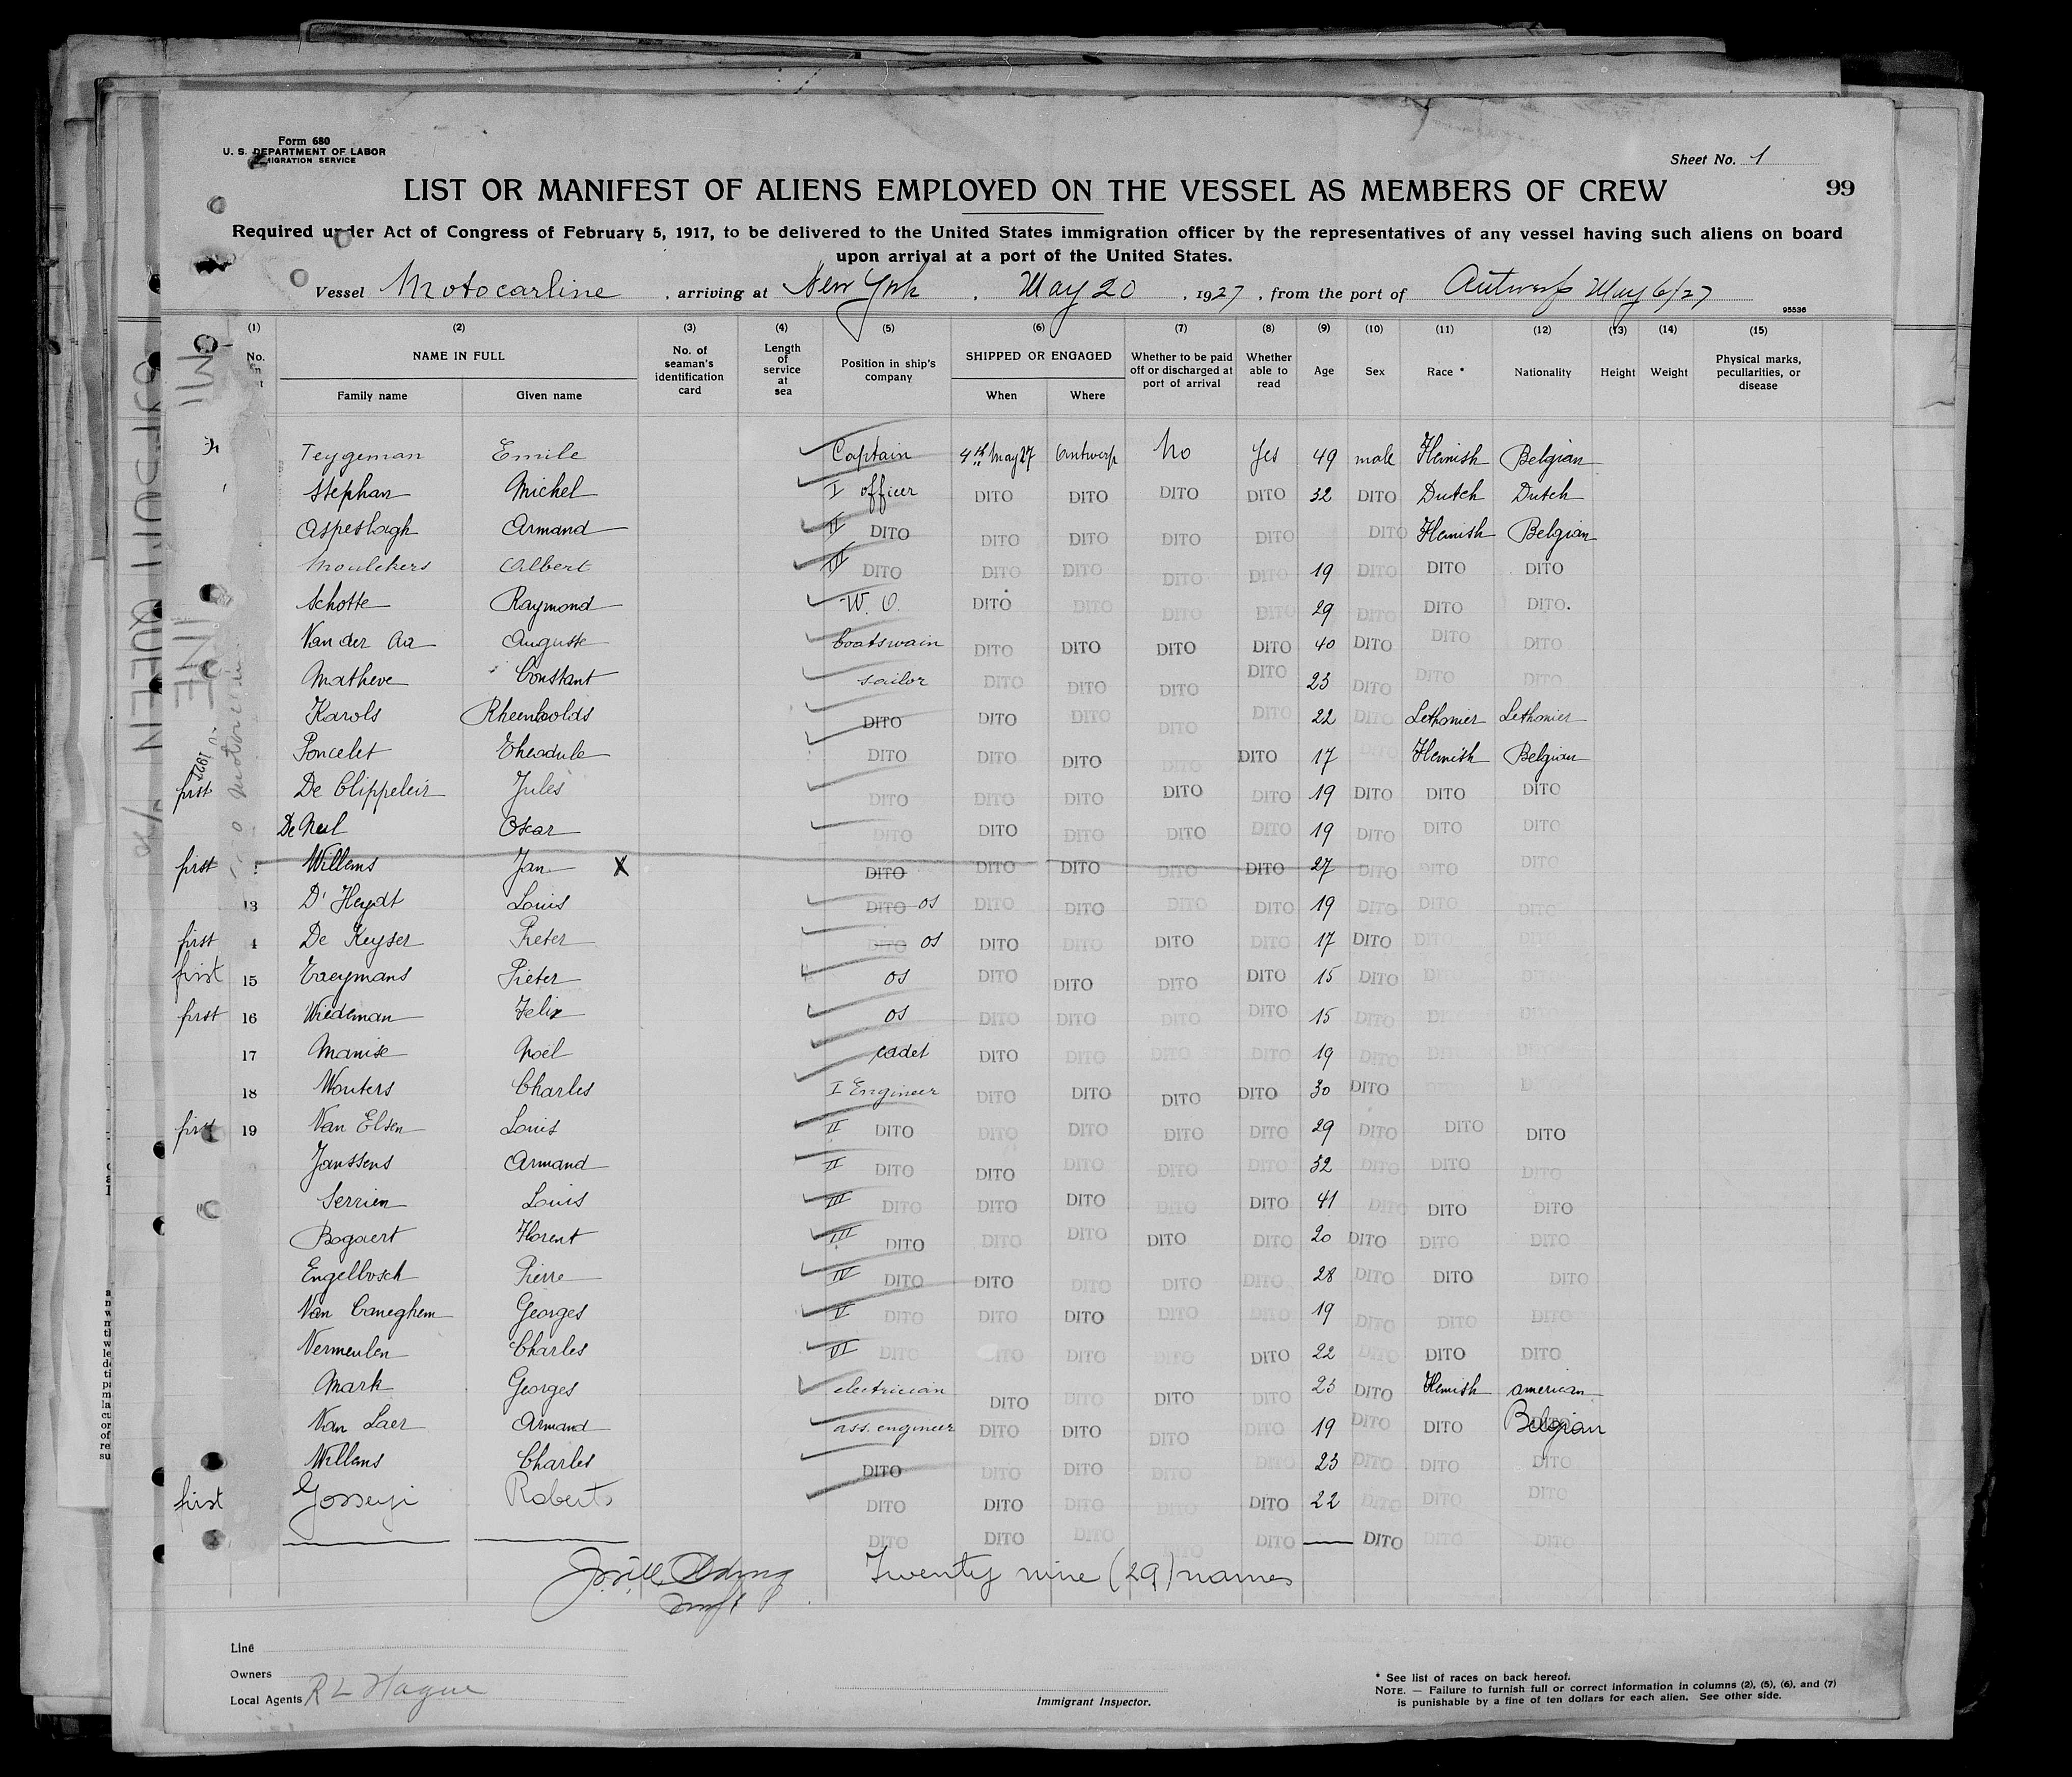 Form 680
U. S. DEPARTMENT OF LABOR
MIGRATION SERVICE
Sheet No. 1
LIST OR MANIFEST OF ALIENS EMPLOYED ON THE VESSEL AS MEMBERS OF CREW 99
Required under Act of Congress of February 5, 1917, to be delivered to the United States immigration officer by the representatives of any vessel having such aliens on board
upon arrival at a port of the United States.
Vessel Motocarline, arriving at New York, May 20, 1927, from the port of Antwerp May 6/27
95536
(1) (2) (3) (4) (5) (6) (7) (8) (9) (10) (11) (12) (13) (14) (15)
No. NAME IN FULL Family name Given name No. of seaman's identification card Length of service at sea Position in ship's company SHIPPED OR ENGAGED When Where Whether to be paid off or discharged at port of arrival Whether able to read Age Sex Race * Nationality Height Weight Physical marks, peculiarities, or disease
Teygeman Emile Captain 4th May 27 Antwerp No Yes 49 male Flemish Belgian
Stephan Michel I officer DITO DITO DITO DITO 32 DITO Dutch Dutch
Aspeslagh Armand II DITO DITO DITO DITO DITO DITO Flemish Belgian
Moulekers Albert III DITO DITO DITO DITO DITO 19 DITO DITO DITO
Schotte Raymond W. O. DITO DITO DITO DITO 29 DITO DITO DITO.
Van der Aa Auguste boatswain DITO DITO DITO DITO 40 DITO DITO DITO
Matheve Constant sailor DITO DITO DITO DITO 23 DITO DITO DITO
Karols Rheenholds DITO DITO DITO DITO DITO 22 DITO Lethonier Lethonier
Poncelet Eheodule DITO DITO DITO DITO DITO 17 DITO Flemish Belgian
first De Clippeleir Jules DITO DITO DITO DITO DITO 19 DITO DITO DITO
De Neel Oscar DITO DITO DITO DITO DITO 19 DITO DITO DITO
first Willems Jan X DITO DITO DITO DITO DITO 27 DITO DITO DITO
13 D'Heydt Louis DITO OS DITO DITO DITO DITO 19 DITO DITO DITO
first 4 De Keyser Pieter DITO OS DITO DITO DITO DITO 17 DITO DITO DITO
first 15 Eraeymans Pieter OS DITO DITO DITO DITO 15 DITO DITO DITO
first 16 Wiedeman Felix OS DITO DITO DITO DITO 15 DITO
17 Manise Noël cadet DITO DITO DITO DITO 19 DITO DITO DITO
18 Wouters Charles I Engineer DITO DITO DITO DITO 30 DITO
first 19 Van Elsen Louis II DITO DITO DITO DITO DITO 29 DITO DITO DITO
Janssens Armand II DITO DITO DITO DITO DITO 32 DITO DITO DITO
Serrien Louis III DITO DITO DITO DITO DITO 41 DITO DITO DITO
Bogaert Florent III DITO DITO DITO DITO DITO 20 DITO DITO DITO
Engelbosch Pierre IV DITO DITO DITO DITO DITO 28 DITO DITO DITO
Van Caneghem Georges V DITO DITO DITO DITO DITO 19 DITO DITO DITO
Vermeulen Charles VI DITO DITO DITO DITO DITO 22 DITO DITO DITO
Mark Georges electrician DITO DITO DITO DITO 23 DITO Flemish american
Van Laer Armand ass. engineer DITO DITO DITO DITO 19 DITO DITO Belgian
Willems Charles DITO DITO DITO DITO DITO 23 DITO DITO DITO
first Gosseyi Roberts DITO DITO DITO DITO DITO 22 DITO DITO DITO
DITO DITO DITO DITO DITO DITO DITO DITO
Twenty nine (29) names
Line
Owners
Local Agents R L Hague
Immigrant Inspector.
* See list of races on back hereof.
NOTE. — Failure to furnish full or correct information in columns (2), (5), (6), and (7)
is punishable by a fine of ten dollars for each alien. See other side.